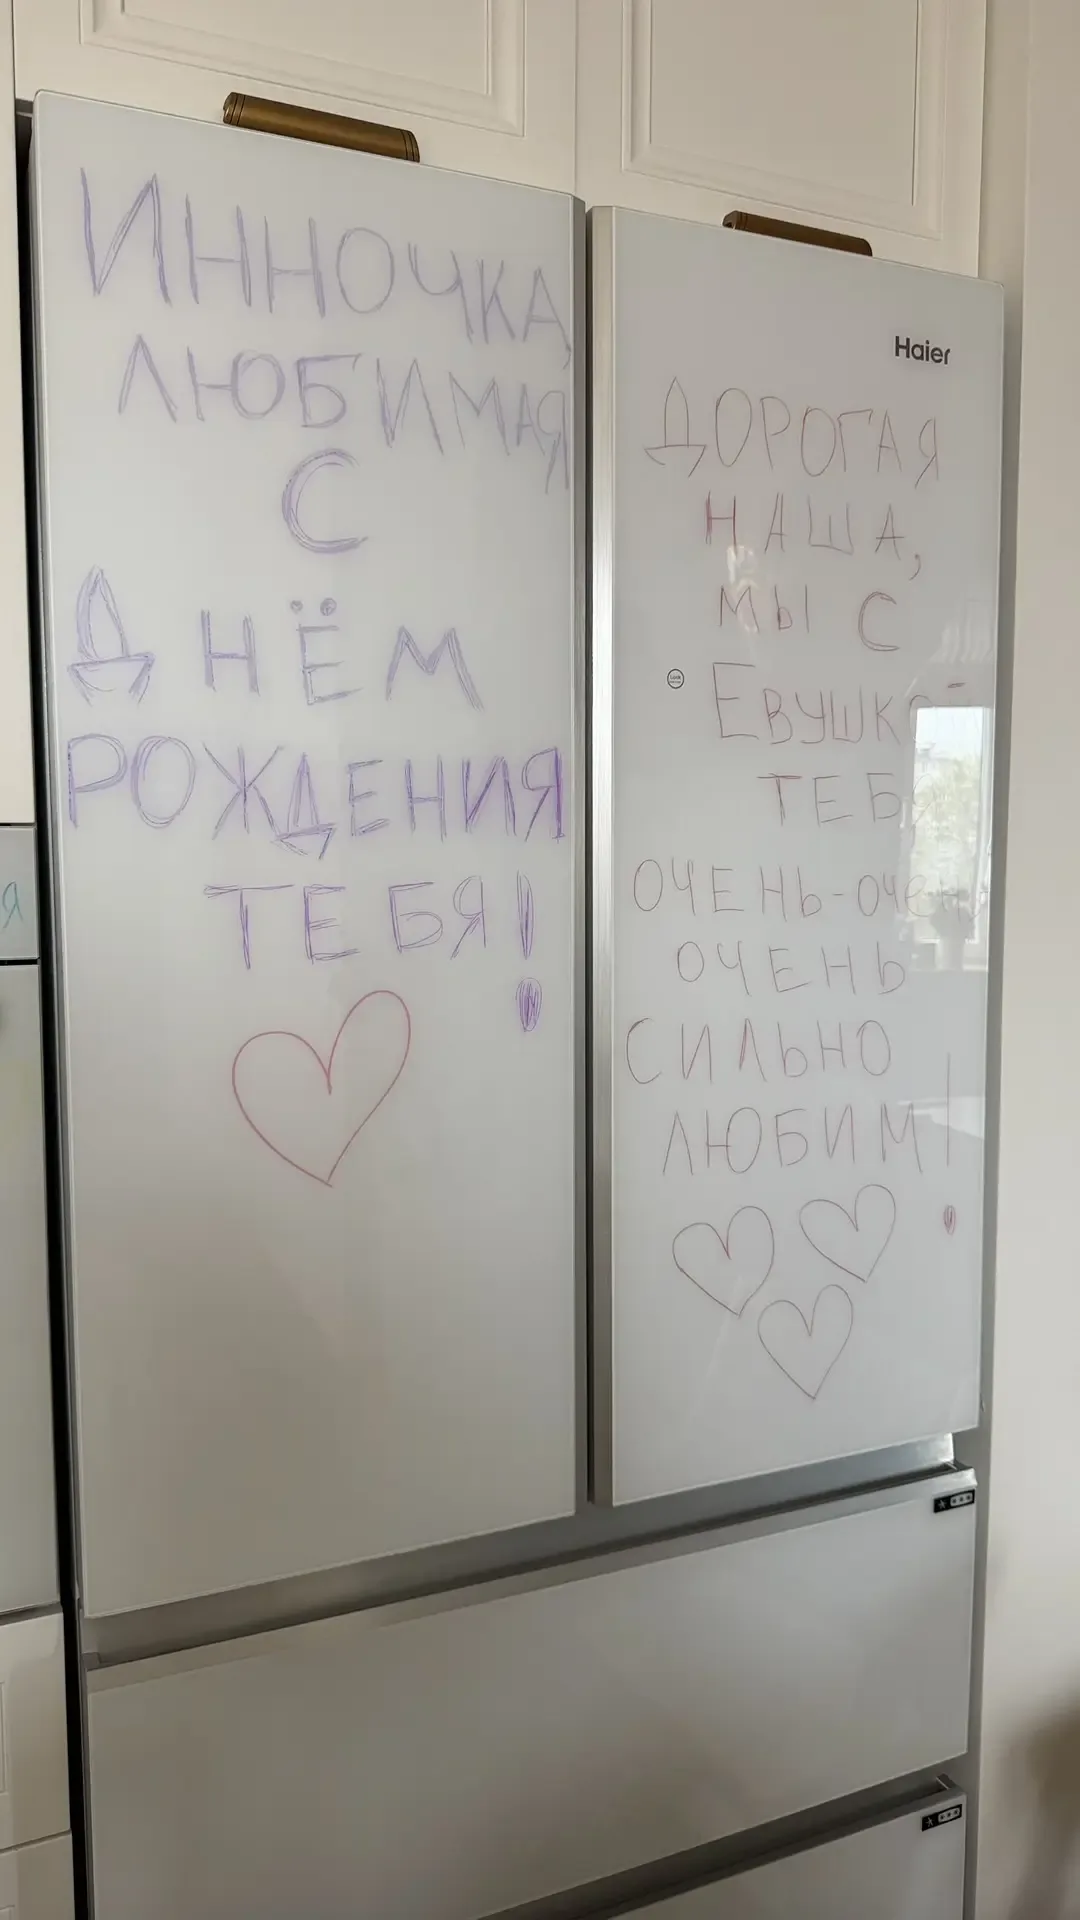 ИННОЧКА,
ЛЮБИМАЯ
С
ДНЁМ
РОЖДЕНИЯ
ТЕБЯ!
Haier
ДОРОГАЯ
НАША,
МЫ С
ЕВУШКОЙ
ТЕБЯ
ОЧЕНЬ-ОЧЕНЬ
ОЧЕНЬ
СИЛЬНО
ЛЮБИМ!
Я